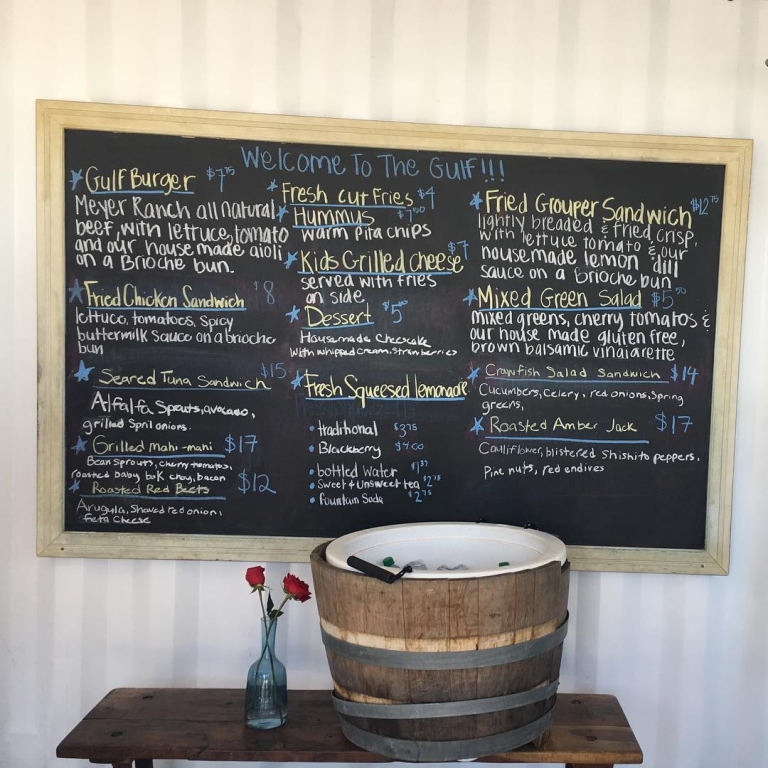 Welcome To The Gulf!!!
Gulf Burger $7.75
Meyer Ranch all natural
beef, with lettuce, tomato
and our house made aioli
on a Brioche bun.
Fried Chicken Sandwich $8
lettuce, tomatoes, spicy
buttermilk sauce on a brioche
bun
Seared Tuna Sandwich $15
Alfalfa Sprouts, avocado,
grilled Spril onions.
Grilled mahi-mahi $17
Bean sprouts, cherry tomatoes,
roasted baby bok choy, bacon
Roasted Red Beets $12
Arugula, Shaved red onion,
feta Cheese
Fresh cut Fries $4
Hummus $7.50
warm pita chips
Kids Grilled cheese $7
served with fries
on side.
Dessert
House made Cheescake
with whipped cream, strawberries
Fresh Squeesed lemonade
• traditional $3.75
• Blackberry $4.00
• bottled water
• Sweet & Unsweet tea $2.75
• fountain Soda $2.75
Fried Grouper Sandwich $12.75
lightly breaded & fried crisp,
with lettuce tomato & our
house made lemon dill
sauce on a Brioche bun
Mixed Green Salad $5.50
mixed greens, cherry tomatos &
our house made gluten free,
brown balsamic vinaiarette
Crawfish Salad Sandwich $14
Cucumbers, Celery, red onions, Spring
greens,
Roasted Amber Jack $17
Cauliflower, blistered Shishito peppers,
Pine nuts, red endives